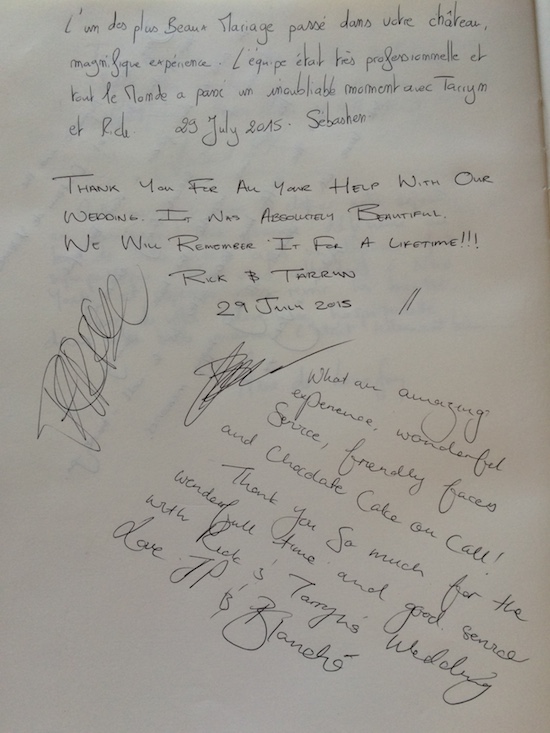 L'un des plus Beaux Mariage passé dans votre château,
magnifique expérience. L'équipe était très professionnelle et
tout le Monde a passé un inoubliable moment avec Tarryn
et Rick 29 July 2015. Sébastien
THANK YOU FOR ALL YOUR HELP WITH OUR
WEDDING. IT WAS ABSOLUTELY BEAUTIFUL.
WE WILL REMEMBER IT FOR A LIFETIME!!!
RICK & TARRYN
29 JULY 2015 //
What an amazing
experience, wonderful
Service, friendly faces
and Chocolate Cake on Call!
Thank you So much for the
wonderfull time and good service
with Rick & Tarryns Wedding
Love JP
& Blanché